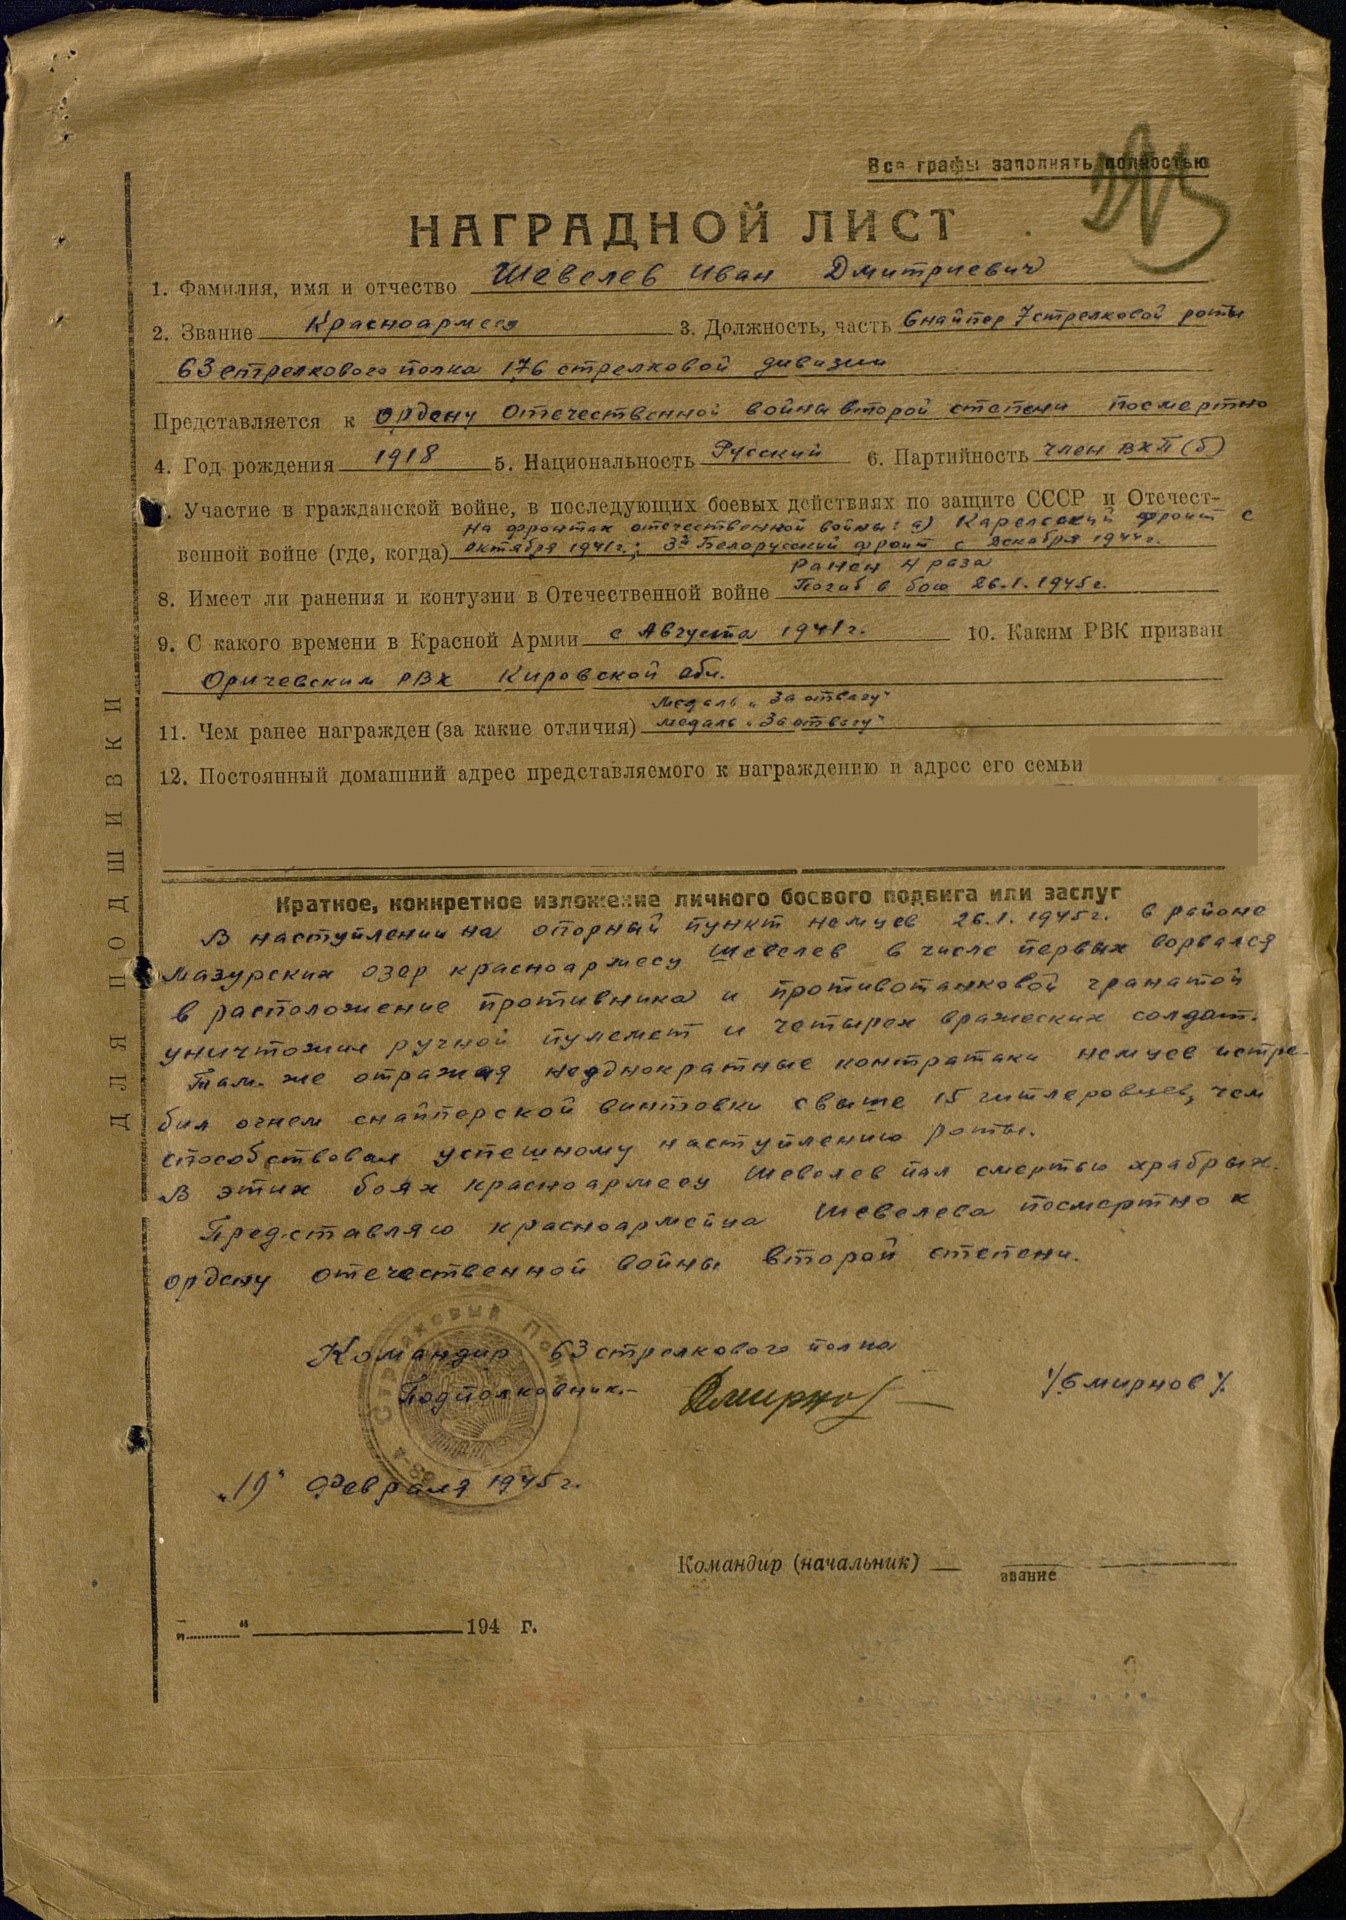 Все графы заполнять полностью
НАГРАДНОЙ ЛИСТ
1. Фамилия, имя и отчество Шевелев Иван Дмитриевич
2. Звание Красноармеец 3. Должность, часть Снайпер 7 стрелковой роты
63 стрелкового полка 176 стрелковой дивизии
Представляется к ордену Отечественной войны второй степени посмертно
4. Год рождения 1918 5. Национальность Русский 6. Партийность член ВКП(б)
Участие в гражданской войне, в последующих боевых действиях по защите СССР и Отечест-
На фронтах отечественной войны: а) Карельский фронт с
венной войне (где, когда) октября 1941г.; 3й Белорусский фронт с декабря 1944г.
ранен 4 раза
8. Имеет ли ранения и контузии в Отечественной войне Погиб в бою 26.1.1945г.
9. С какого времени в Красной Армии с Августа 1941г. 10. Каким РВК призван
Оричевским РВК Кировской обл.
медаль „За отвагу"
11. Чем ранее награжден (за какие отличия) медаль „За отвагу"
12. Постоянный домашний адрес представляемого к награждению и адрес его семьи
Краткое, конкретное изложение личного боевого подвига или заслуг
В наступлении на опорный пункт немцев 26.1.1945г. в районе
Мазурских озер красноармеец Шевелев в числе первых ворвался
в расположение противника и противотанковой гранатой
уничтожил ручной пулемет и четырех вражеских солдат.
Там-же отражая неоднократные контратаки немцев истре-
бил огнем снайперской винтовки свыше 15 гитлеровцев, чем
способствовал успешному наступлению роты.
В этих боях красноармеец Шевелев пал смертью храбрых.
Представляю красноармейца Шевелева посмертно к
ордену отечественной войны второй степени.
Командир 63 стрелкового полка
Подполковник- Смирнов /Смирнов/.
„19" Февраля 1945г.
Командир (начальник)
звание
„ " 194 г.
ДЛЯ ПОДШИВКИ
Стрелковый Полк